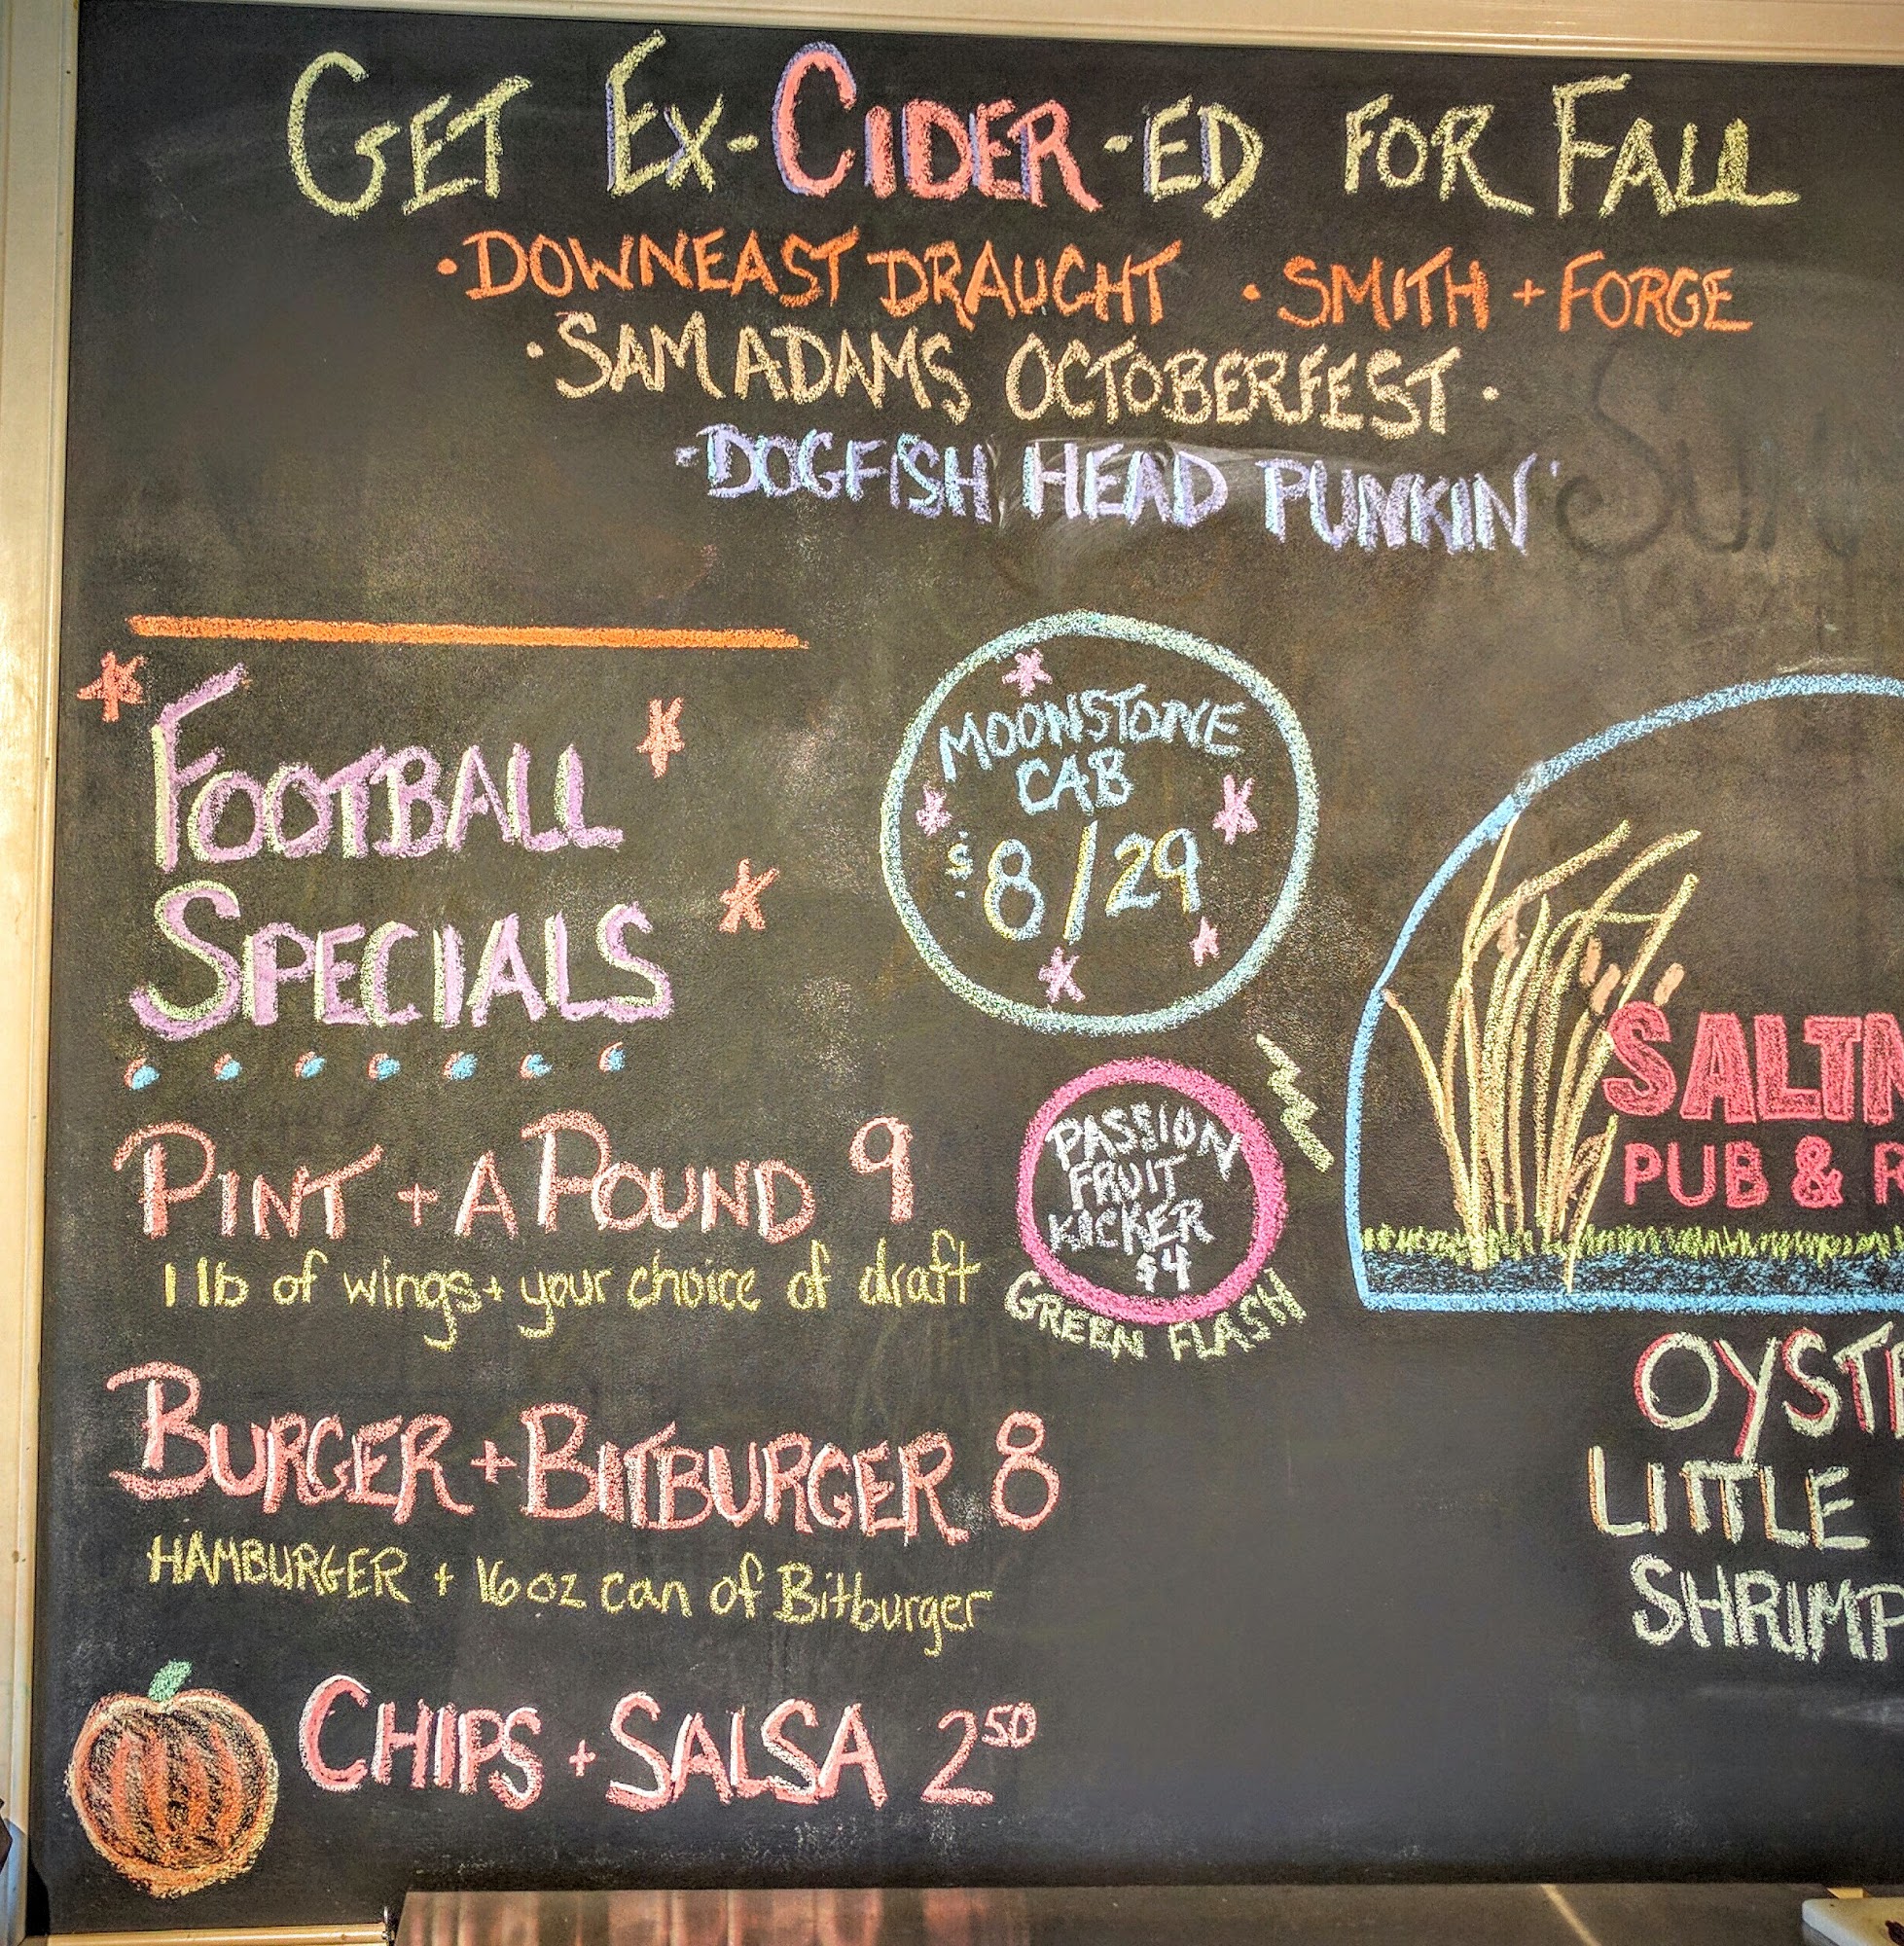 GET EX-CIDER-ED FOR FALL
• DOWNEAST DRAUGHT • SMITH + FORGE
• SAM ADAMS OCTOBERFEST •
• DOGFISH HEAD PUNKIN •
FOOTBALL
SPECIALS
PINT + A POUND 9
1 lb of wings + your choice of draft
BURGER + BITBURGER 8
HAMBURGER + 16oz can of Bitburger
CHIPS + SALSA 2⁵⁰
MOONSTONE
CAB
$8/29
PASSION
FRUIT
KICKER
$4
GREEN FLASH
PUB &
LITTLE
SHRIMP